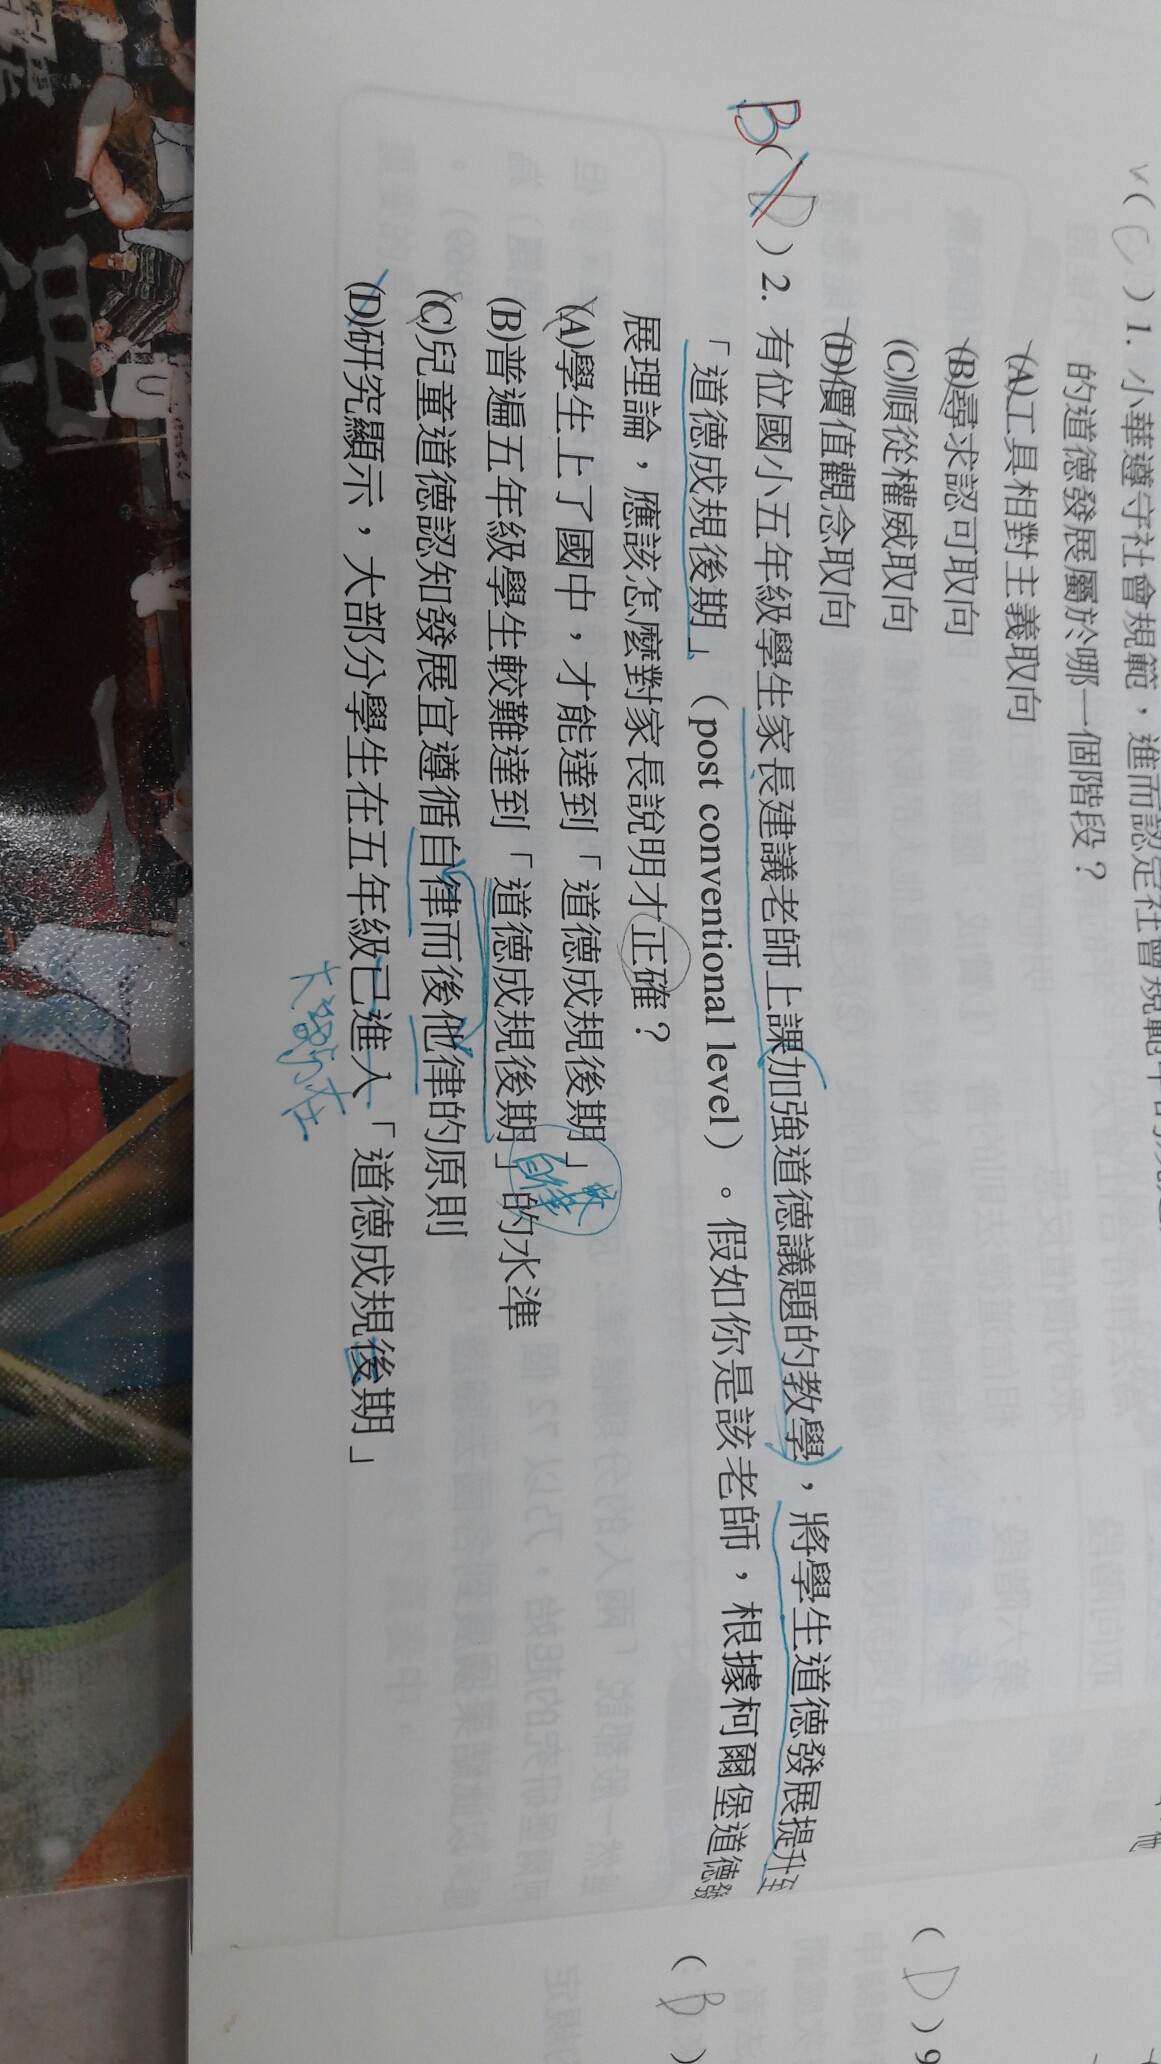 v( C ) 1. 小華遵守社會規範，進而認定社會規範中的
的道德發展屬於哪一個階段？
(A)工具相對主義取向
(B)尋求認可取向
(C)順從權威取向
(D)價值觀念取向
B( D ) 2. 有位國小五年級學生家長建議老師上課加強道德議題的教學，將學生道德發展提升至
「道德成規後期」（post conventional level）。假如你是該老師，根據柯爾堡道德發
展理論，應該怎麼對家長說明才正確？
(A)學生上了國中，才能達到「道德成規後期」
(B)普遍五年級學生較難達到「道德成規後期」的水準
自律
(C)兒童道德認知發展宜遵循自律而後他律的原則
(D)研究顯示，大部分學生在五年級已進入「道德成規後期」
大部分在
( D ) 9
( B )